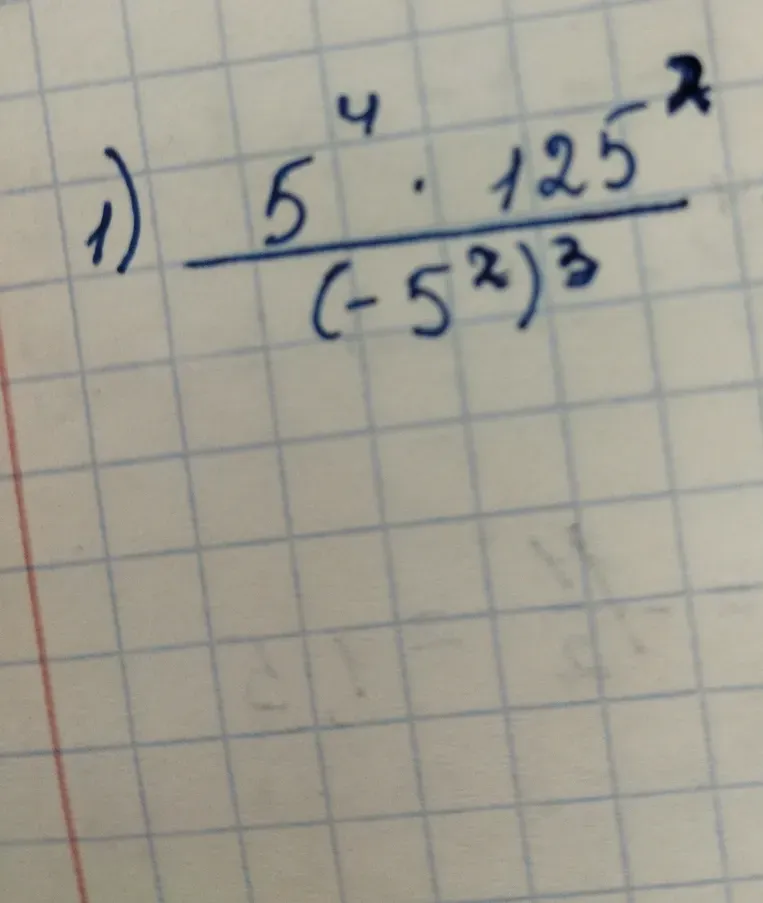 1) 5⁴ · 125²
(-5²)³